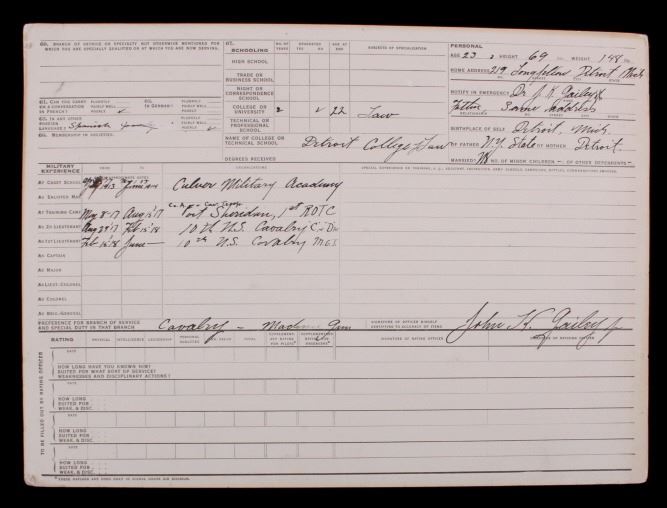 60. BRANCH OF SERVICE OR SPECIALTY NOT OTHERWISE MENTIONED FOR
WHICH YOU ARE SPECIALLY QUALIFIED OR AT WHICH YOU ARE NOW SERVING.
61. CAN YOU CARRY
ON A CONVERSATION
IN FRENCH?
FLUENTLY
FAIRLY WELL
POORLY ✓
62.
IN GERMAN?
FLUENTLY
FAIRLY WELL
POORLY
63. IN ANY OTHER
FOREIGN
LANGUAGE? Spanish
FLUENTLY
FAIRLY WELL
POORLY ✓
MEMBERSHIP IN SOCIETIES.
67.
SCHOOLING
NO. OF YEARS
GRADUATED
YES NO
AGE AT END
SUBJECTS OF SPECIALIZATION
HIGH SCHOOL
TRADE OR
BUSINESS SCHOOL
NIGHT OR
CORRESPONDENCE
SCHOOL
COLLEGE OR
UNIVERSITY 2 ✓ 22 Law
TECHNICAL OR
PROFESSIONAL
SCHOOL
NAME OF COLLEGE OR
TECHNICAL SCHOOL Detroit College Law
DEGREES RECEIVED
PERSONAL
AGE 23 HEIGHT 69 IN. WEIGHT 148
HOME ADDRESS 219 Longfellow Detroit Mich
NOTIFY IN EMERGENCY Dr. J. K. Gailey
Father Same address
RELATIONSHIP
BIRTHPLACE OF SELF Detroit, Mich.
OF FATHER N.Y. State OF MOTHER Detroit
MARRIED? No NO. OF MINOR CHILDREN - OF OTHER DEPENDENTS -
MILITARY
EXPERIENCE
AT CADET SCHOOL 1913 June 1914 Culver Military Academy
AS ENLISTED MAN
AT TRAINING CAMP May 8-17 Aug 15'17 Fort Sheridan, 1st ROTC
AS 2D LIEUTENANT Aug 29'17 Feb 15'18 10th U.S. Cavalry
AS 1ST LIEUTENANT Feb 15'18 June— 10th U.S. Cavalry
AS CAPTAIN
AS MAJOR
AS LIEUT.-COLONEL
AS COLONEL
AS BRIG.-GENERAL
PREFERENCE FOR BRANCH OF SERVICE
AND SPECIAL DUTY IN THAT BRANCH Cavalry - Machine Gun
SIGNATURE OF OFFICER HIMSELF
CERTIFYING TO ACCURACY OF ITEMS John K. Gailey Jr
RATING PHYSICAL INTELLIGENCE LEADERSHIP PERSONAL QUALITIES TOTAL SIGNATURE OF RATING OFFICER
TO BE FILLED OUT BY RATING OFFICER
DATE
HOW LONG HAVE YOU KNOWN HIM?
SUITED FOR WHAT SORT OF SERVICE?
WEAKNESSES AND DISCIPLINARY ACTIONS?
DATE
HOW LONG
SUITED FOR
WEAK. & DISC.
DATE
HOW LONG
SUITED FOR
WEAK. & DISC.
DATE
HOW LONG
SUITED FOR
WEAK. & DISC.